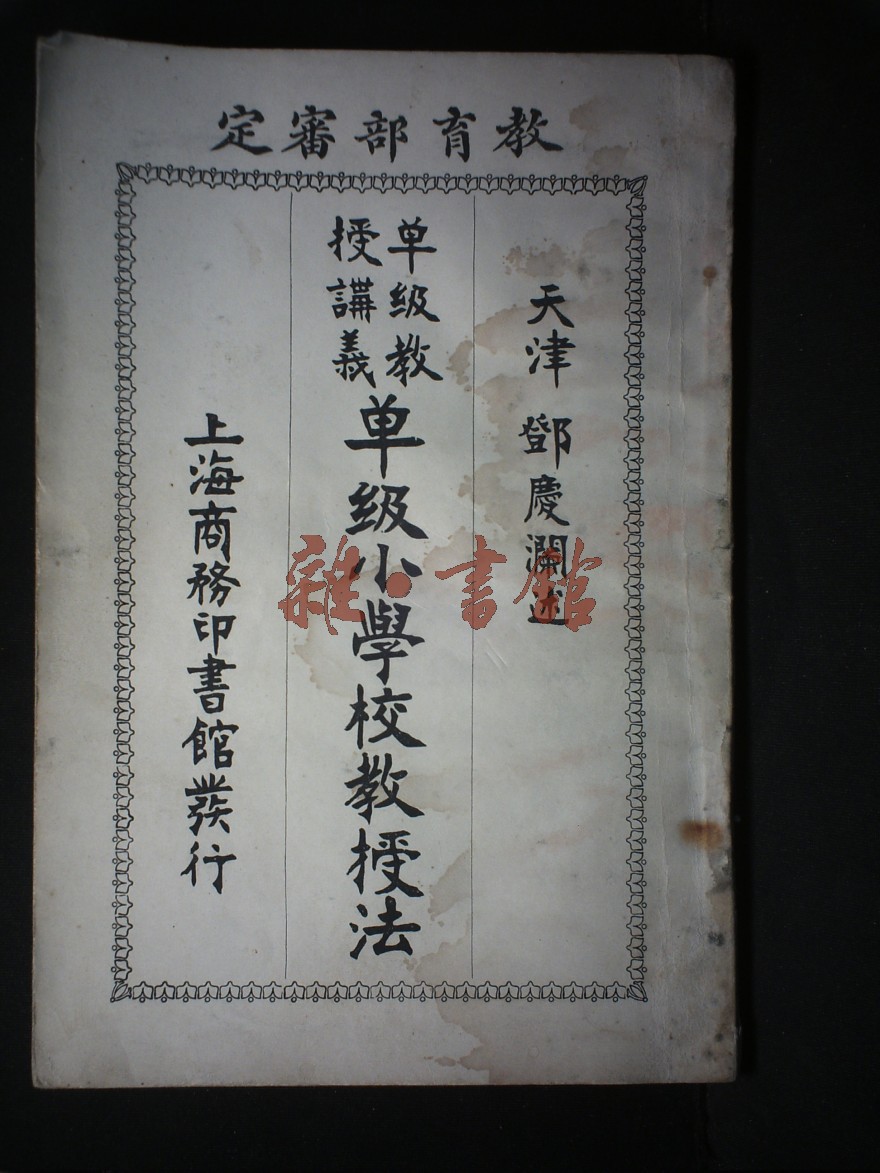 教育部審定
天津 鄧慶瀾述
单級教
授講義
单級小學校教授法
上海商務印書館發行
雜·書館